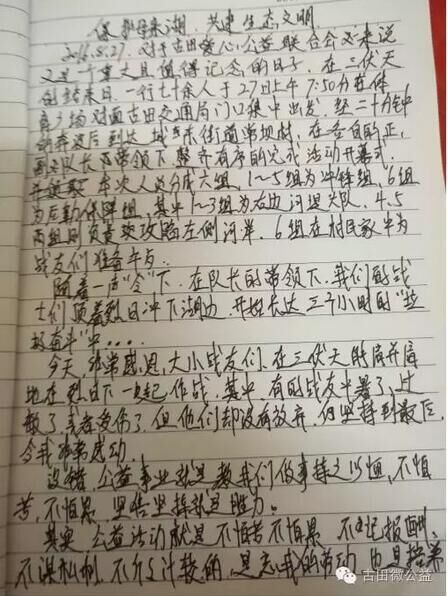 保护翠屏湖、共建生态文明
2016.8.27. 对于古田爱心公益联合会又来说
又是一个重大且值得记念的日子，在三伏天
创结束日，一行七十余人于27日上午7:50分在体
育广场对面古田交通局门口集中出发，经二十分钟
的奔波后到达城东街道常坝村，在各自的正、
副队长的带领下整齐有序的完成活动开幕式，
本次人员分成六组，1~5组为冲锋组，6组
为后勤保障组，其中1~3组为右边河堤大队，4.5
两组则负责攻略左侧河岸，6组在村民家中为
战友们准备午与
随着一声"令"下，在队长的带领下，我们的战
士们顶着烈日冲下湖边，开始长达三个小时的"艰
奋斗"中....
今天，非常感恩，大小战友们，在三伏天时肩并肩
地在烈日下一起作战，其中，有的战友中暑了，过
敏了，或者受伤了，但他们却没有放弃，仍坚持到最后，
令我非常感动。
没错，公益事业就是教我们做事持之以恒，不怕
苦，不怕累，坚持坚持就是胜力。
其实，公益活动就是不怕苦不怕累，不记报酬
不谋私利，不斤斤计较的，是忘我的劳动，
古田微公益